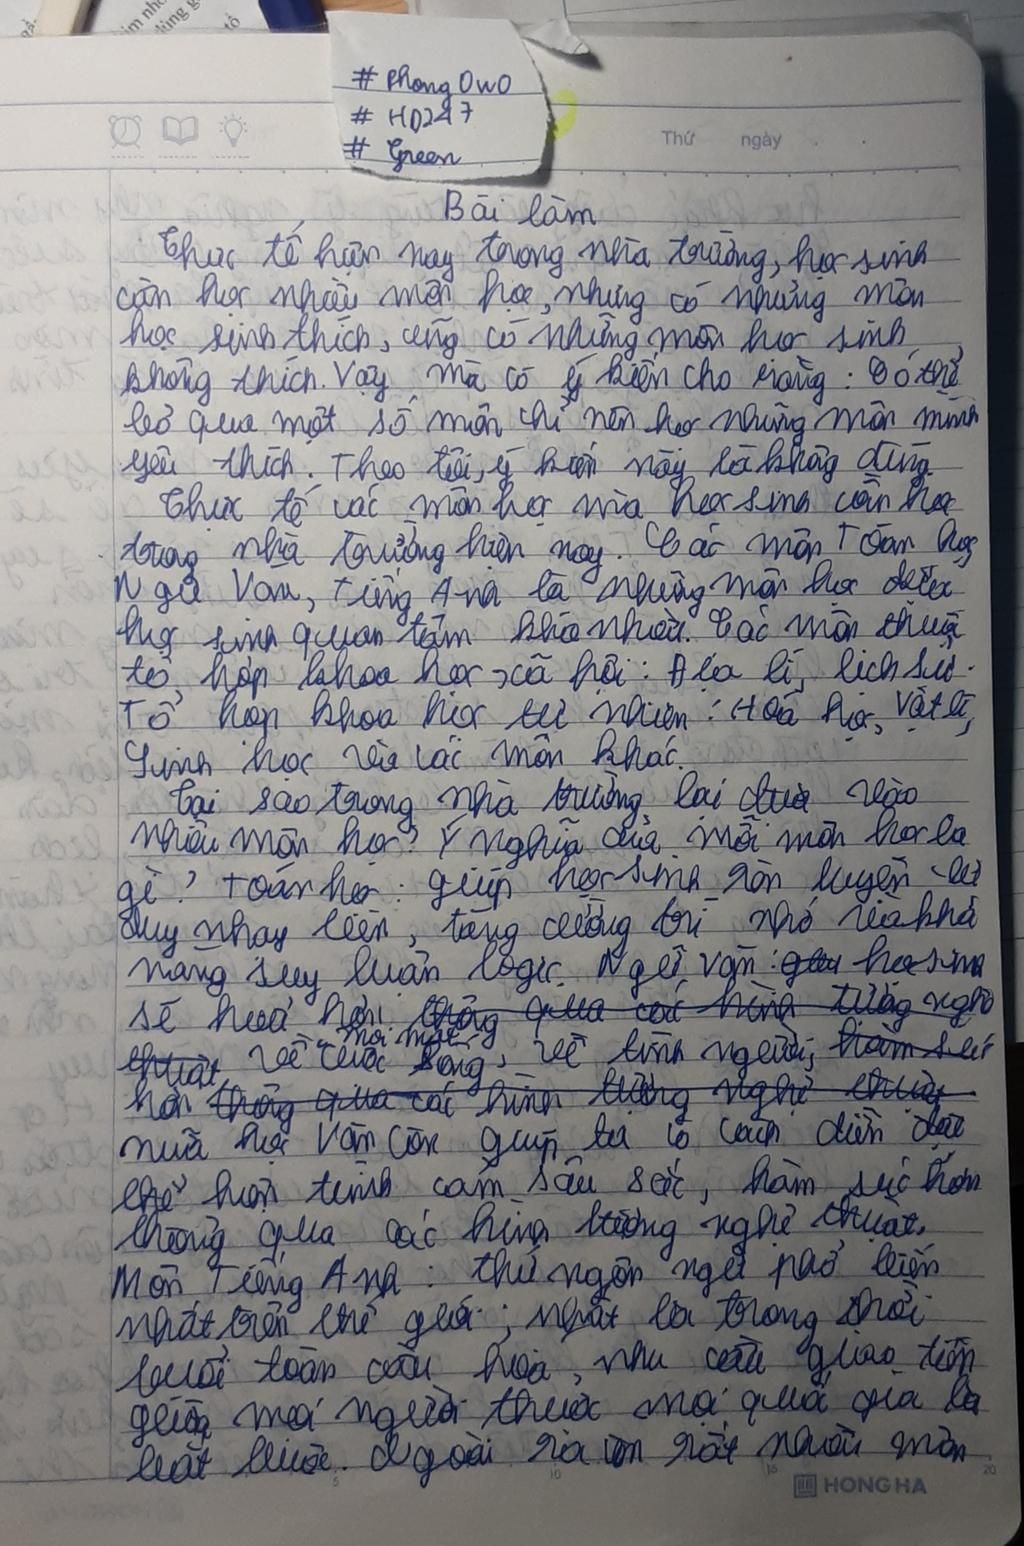 # Phong OwO
# HD247
# Green
Thứ ngày
Bài làm
Thực tế hiện nay trong nhà trường, học sinh
cần học nhiều môn học, nhưng có những môn
học sinh thích, cũng có những môn học sinh
không thích. Vậy mà có ý kiến cho rằng: Có thể
bỏ qua một số môn chỉ nên học những môn mình
yêu thích. Theo tôi, ý kiến này là không đúng.
Thực tế các môn học mà học sinh cần học
trong nhà trường hiện nay. Các môn Toán học,
Ngữ Văn, Tiếng Anh là những môn học được
học sinh quan tâm khá nhiều. Các môn thuộc
tổ hợp khoa học xã hội: Địa lí, lịch sử.
Tổ hợp khoa học tự nhiên: Hoá học, Vật lí,
Sinh học và các môn khác.
Tại sao trong nhà trường lại đưa vào
nhiều môn học? Ý nghĩa của mỗi môn học là
gì? Toán học: giúp học sinh rèn luyện tư
duy nhạy bén, tăng cường trí nhớ và khả
năng suy luận logic. Ngữ văn: học sinh
sẽ hiểu hơn thông qua các hình tượng nghệ
thuật về cuộc sống, mọi mặt, về tình người, hàm súc
hơn thông qua các hình tượng nghệ thuật
nữa học Văn còn giúp ta có cách diễn đạt
thể hiện tình cảm sâu sắc, hàm súc hơn
thông qua các hình tượng nghệ thuật.
Môn Tiếng Anh: thứ ngôn ngữ phổ biến
nhất trên thế giới; nhất là trong thời
buổi toàn cầu hoá, nhu cầu giao tiếp
giữa mọi người thuộc mọi quốc gia là
bắt buộc. Ngoài ra còn rất nhiều môn
5 10 15 20
HONG HA